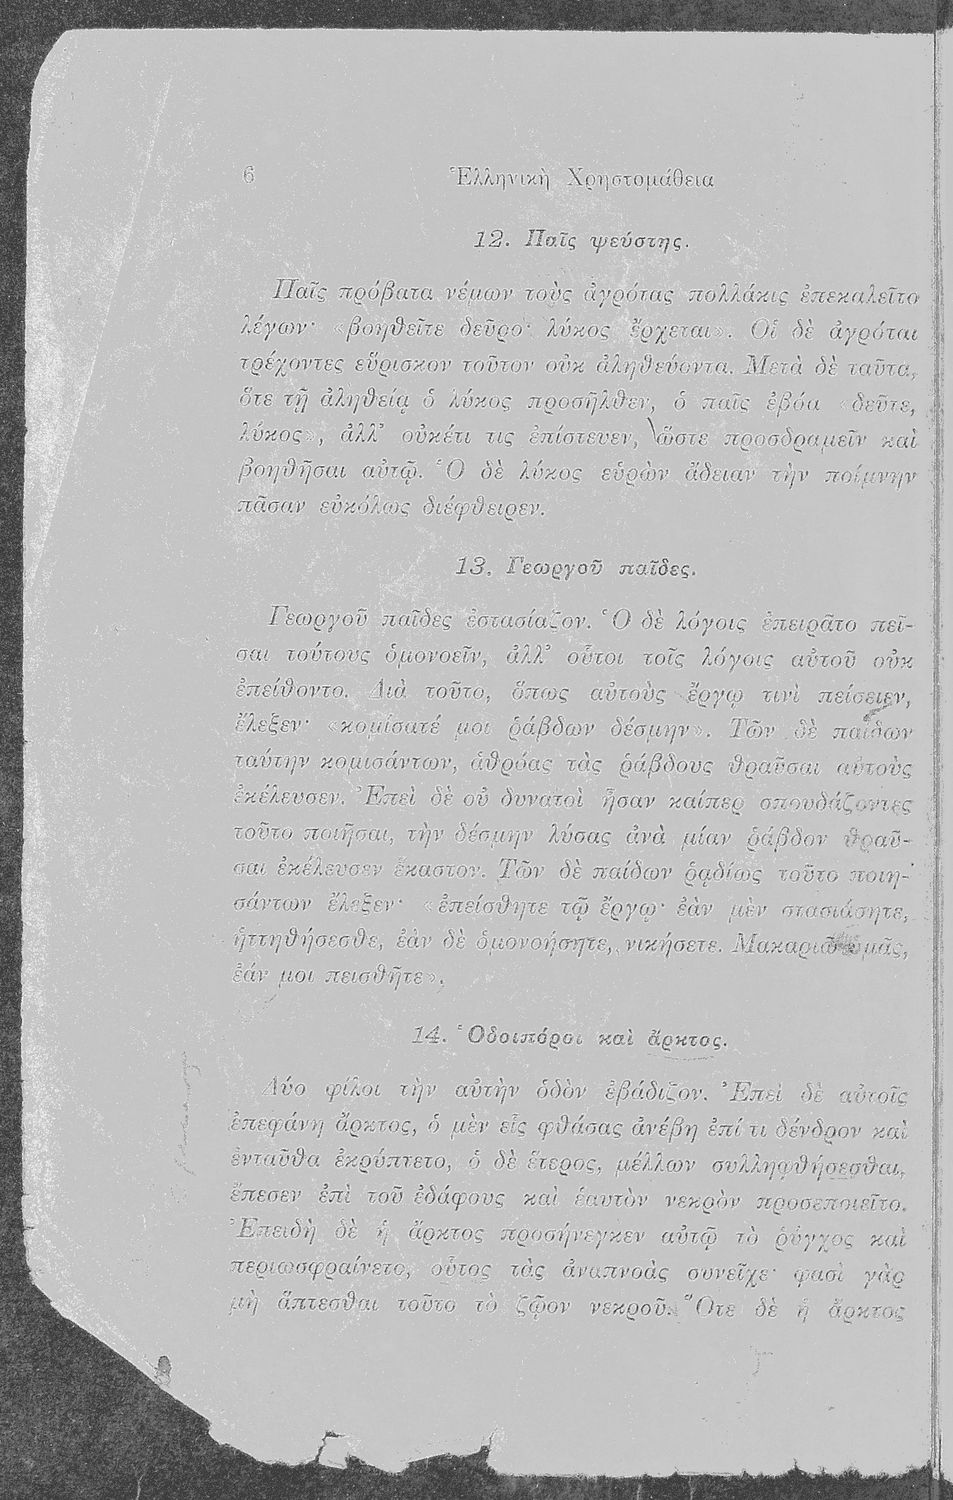 6
Ἑλληνικὴ Χρηστομάθεια
12. Παῖς ψεύστης.
Παῖς πρόβατα νέμων τοὺς ἀγρότας πολλάκις ἐπεκαλεῖτο
λέγων· «βοηθεῖτε δεῦρο· λύκος ἔρχεται». Οἱ δὲ ἀγρόται
τρέχοντες εὕρισκον τοῦτον οὐκ ἀληθεύοντα. Μετὰ δὲ ταῦτα,
ὅτε τῇ ἀληθείᾳ ὁ λύκος προσῆλθεν, ὁ παῖς ἐβόα «δεῦτε,
λύκος», ἀλλ’ οὐκέτι τις ἐπίστευεν, ὥστε προσδραμεῖν καὶ
βοηθῆσαι αὐτῷ. Ὁ δὲ λύκος εὑρὼν ἄδειαν τὴν ποίμνην
πᾶσαν εὐκόλως διέφθειρεν.
13. Γεωργοῦ παῖδες.
Γεωργοῦ παῖδες ἐστασίαζον. Ὁ δὲ λόγοις ἐπειρᾶτο πεῖ-
σαι τούτους ὁμονοεῖν, ἀλλ’ οὗτοι τοῖς λόγοις αὐτοῦ οὐκ
ἐπείθοντο. Διὰ τοῦτο, ὅπως αὐτοὺς ἔργῳ τινὶ πείσειεν,
ἔλεξεν· «κομίσατέ μοι ῥάβδων δέσμην». Τῶν δὲ παίδων
ταύτην κομισάντων, ἀθρόας τὰς ῥάβδους θραῦσαι αὐτοὺς
ἐκέλευσεν. Ἐπεὶ δὲ οὐ δυνατοὶ ἦσαν καίπερ σπουδάζοντες
τοῦτο ποιῆσαι, τὴν δέσμην λύσας ἀνὰ μίαν ῥάβδον θραῦ-
σαι ἐκέλευσεν ἕκαστον. Τῶν δὲ παίδων ῥᾳδίως τοῦτο ποιη-
σάντων ἔλεξεν· «ἐπείσθητε τῷ ἔργῳ· ἐὰν μὲν στασιάσητε,
ἡττηθήσεσθε, ἐὰν δὲ ὁμονοήσητε, νικήσετε. Μακαριῶ ὑμᾶς,
ἐάν μοι πεισθῆτε».
14. Ὁδοιπόροι καὶ ἄρκτος.
Δύο φίλοι τὴν αὐτὴν ὁδὸν ἐβάδιζον. Ἐπεὶ δὲ αὐτοῖς
ἐπεφάνη ἄρκτος, ὁ μὲν εἷς φθάσας ἀνέβη ἐπί τι δένδρον καὶ
ἐνταῦθα ἐκρύπτετο, ὁ δὲ ἕτερος, μέλλων συλληφθήσεσθαι,
ἔπεσεν ἐπὶ τοῦ ἐδάφους καὶ ἑαυτὸν νεκρὸν προσεποιεῖτο.
Ἐπειδὴ δὲ ἡ ἄρκτος προσήνεγκεν αὐτῷ τὸ ῥύγχος καὶ
περιωσφραίνετο, οὗτος τὰς ἀναπνοὰς συνεῖχε· φασὶ γὰρ
μὴ ἅπτεσθαι τοῦτο τὸ ζῷον νεκροῦ. Ὅτε δὲ ἡ ἄρκτος